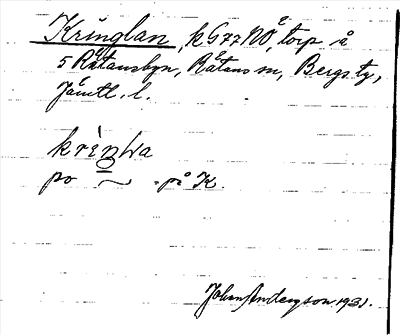 Kringlan, k G77 NO, torp å
5 Råtansbyn, Råtans sn, Bergs tg,
Jämtl. l.
po ~ . på K.
Johan Anderson 1931.